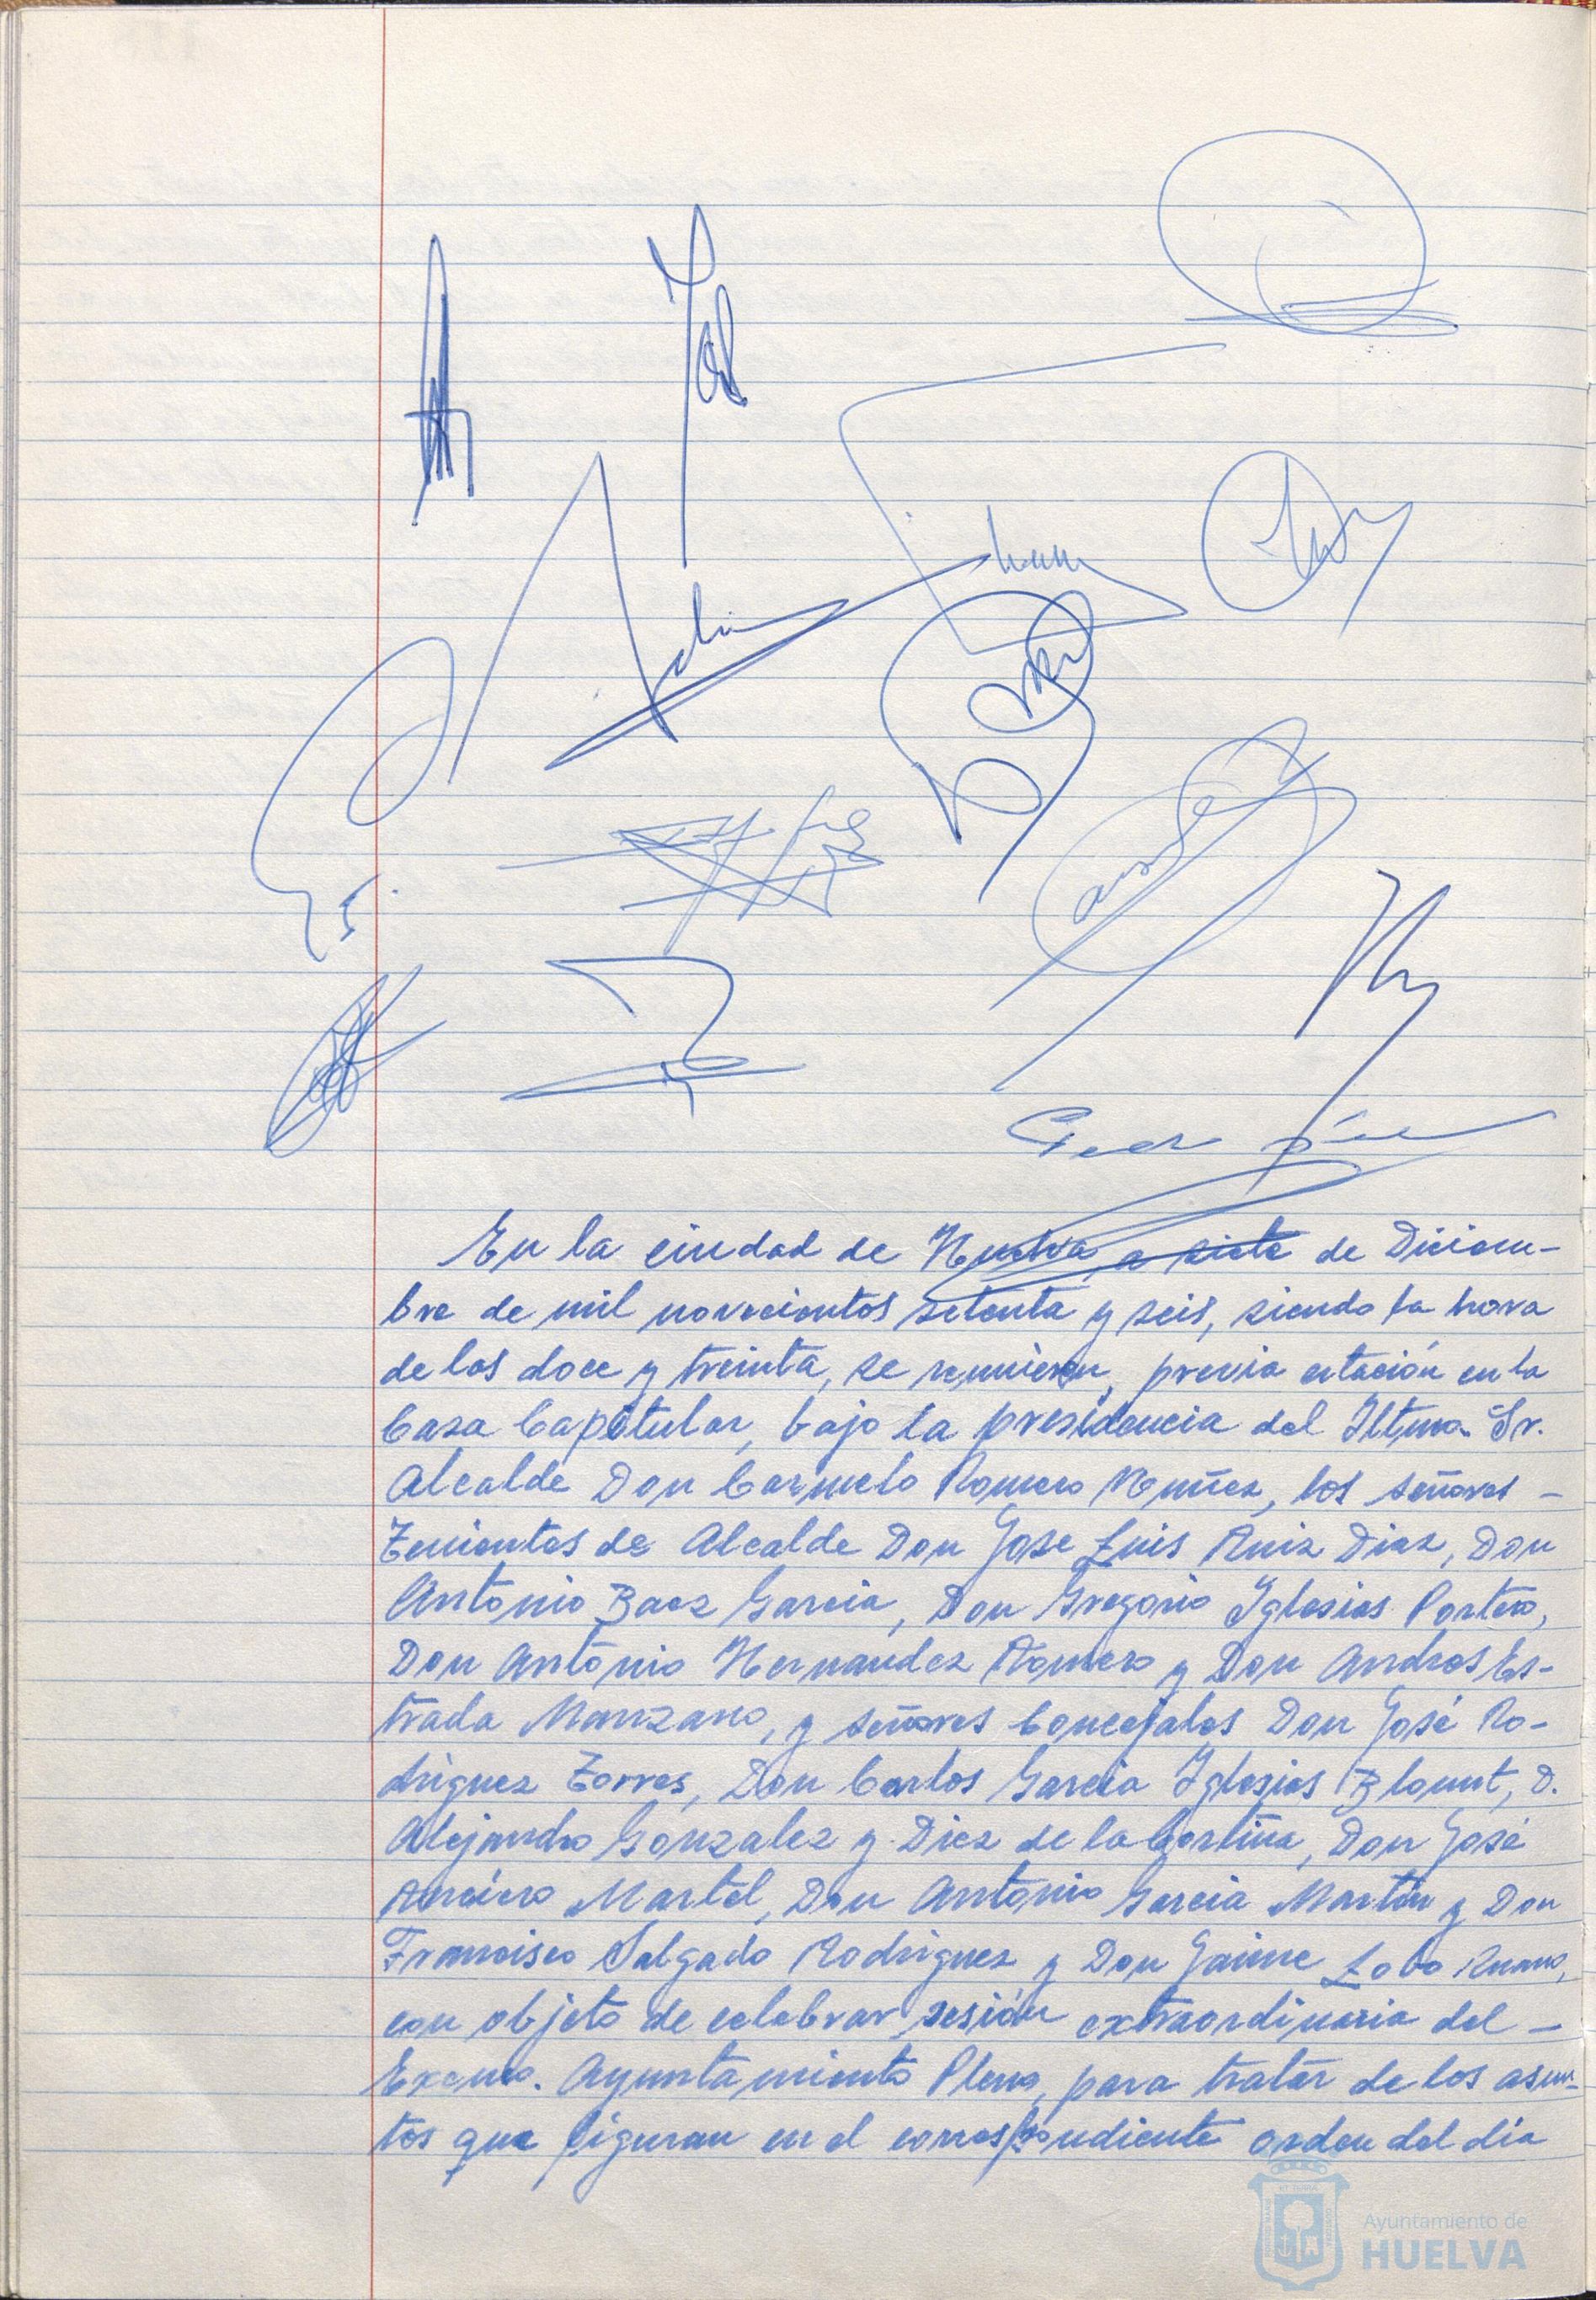 En la ciudad de Huelva, a siete de Diciem-
bre de mil novecientos setenta y seis, siendo la hora
de las doce y treinta, se reunieron, previa citación en la
Casa Capitular, bajo la presidencia del Iltmo. Sr.
Alcalde Don Carmelo Romero Nuñez, los señores -
Tenientes de Alcalde Don Jose Luis Ruiz Diaz, Don
Antonio Baez Garcia, Don Gregorio Iglesias Portero,
Don Antonio Hernandez Romero y Don Andres Es-
trada Manzano, y señores Concejales Don José Ro-
driguez Torres, Don Carlos Garcia Iglesias Blount, D.
Alejandro Gonzalez y Diez de la Cortina, Don José
Martel, Don Antonio Garcia Martín y Don
Francisco Salgado Rodriguez y Don Jaime Lobo Ruano,
con objeto de celebrar sesión extraordinaria del -
Excmo. Ayuntamiento Pleno, para tratar de los asun-
tos que figuran en el correspondiente orden del día
Ayuntamiento de
HUELVA